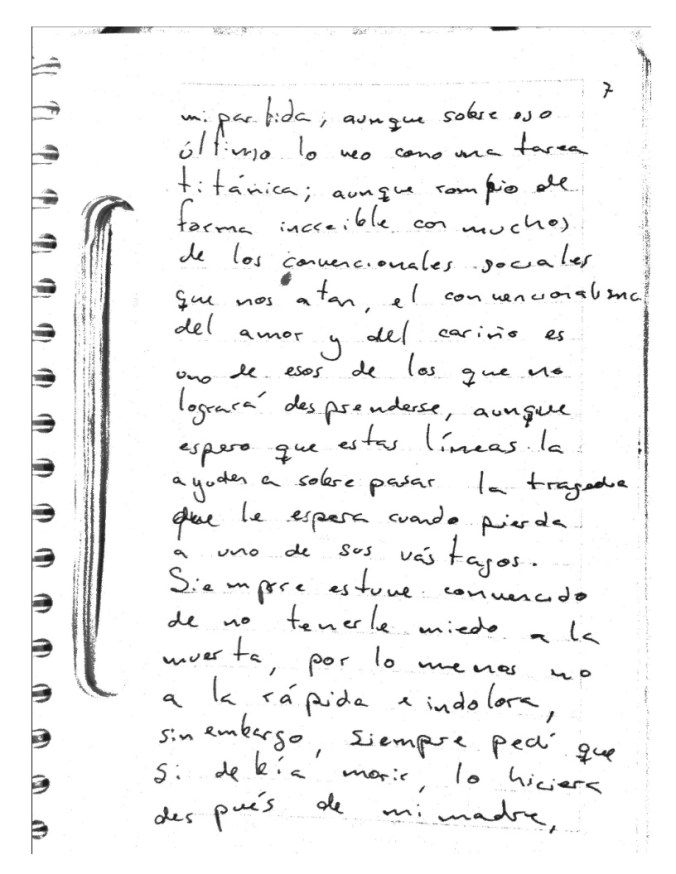 7
mi partida; aunque sobre eso
último lo veo como una tarea
titánica; aunque rompio de
forma increible con muchos
de los convencionales sociales
que nos atan, el convencionalismo
del amor y del cariño es
uno de esos de los que no
logrará desprenderse, aunque
espero que estas líneas la
ayuden a sobre pasar la tragedia
que le espera cuando pierda
a uno de sus vástagos.
Siempre estuve convencido
de no tenerle miedo a la
muerta, por lo menos no
a la rápida e indolora,
sin embargo, siempre pedí que
si debía morir, lo hiciera
después de mi madre,